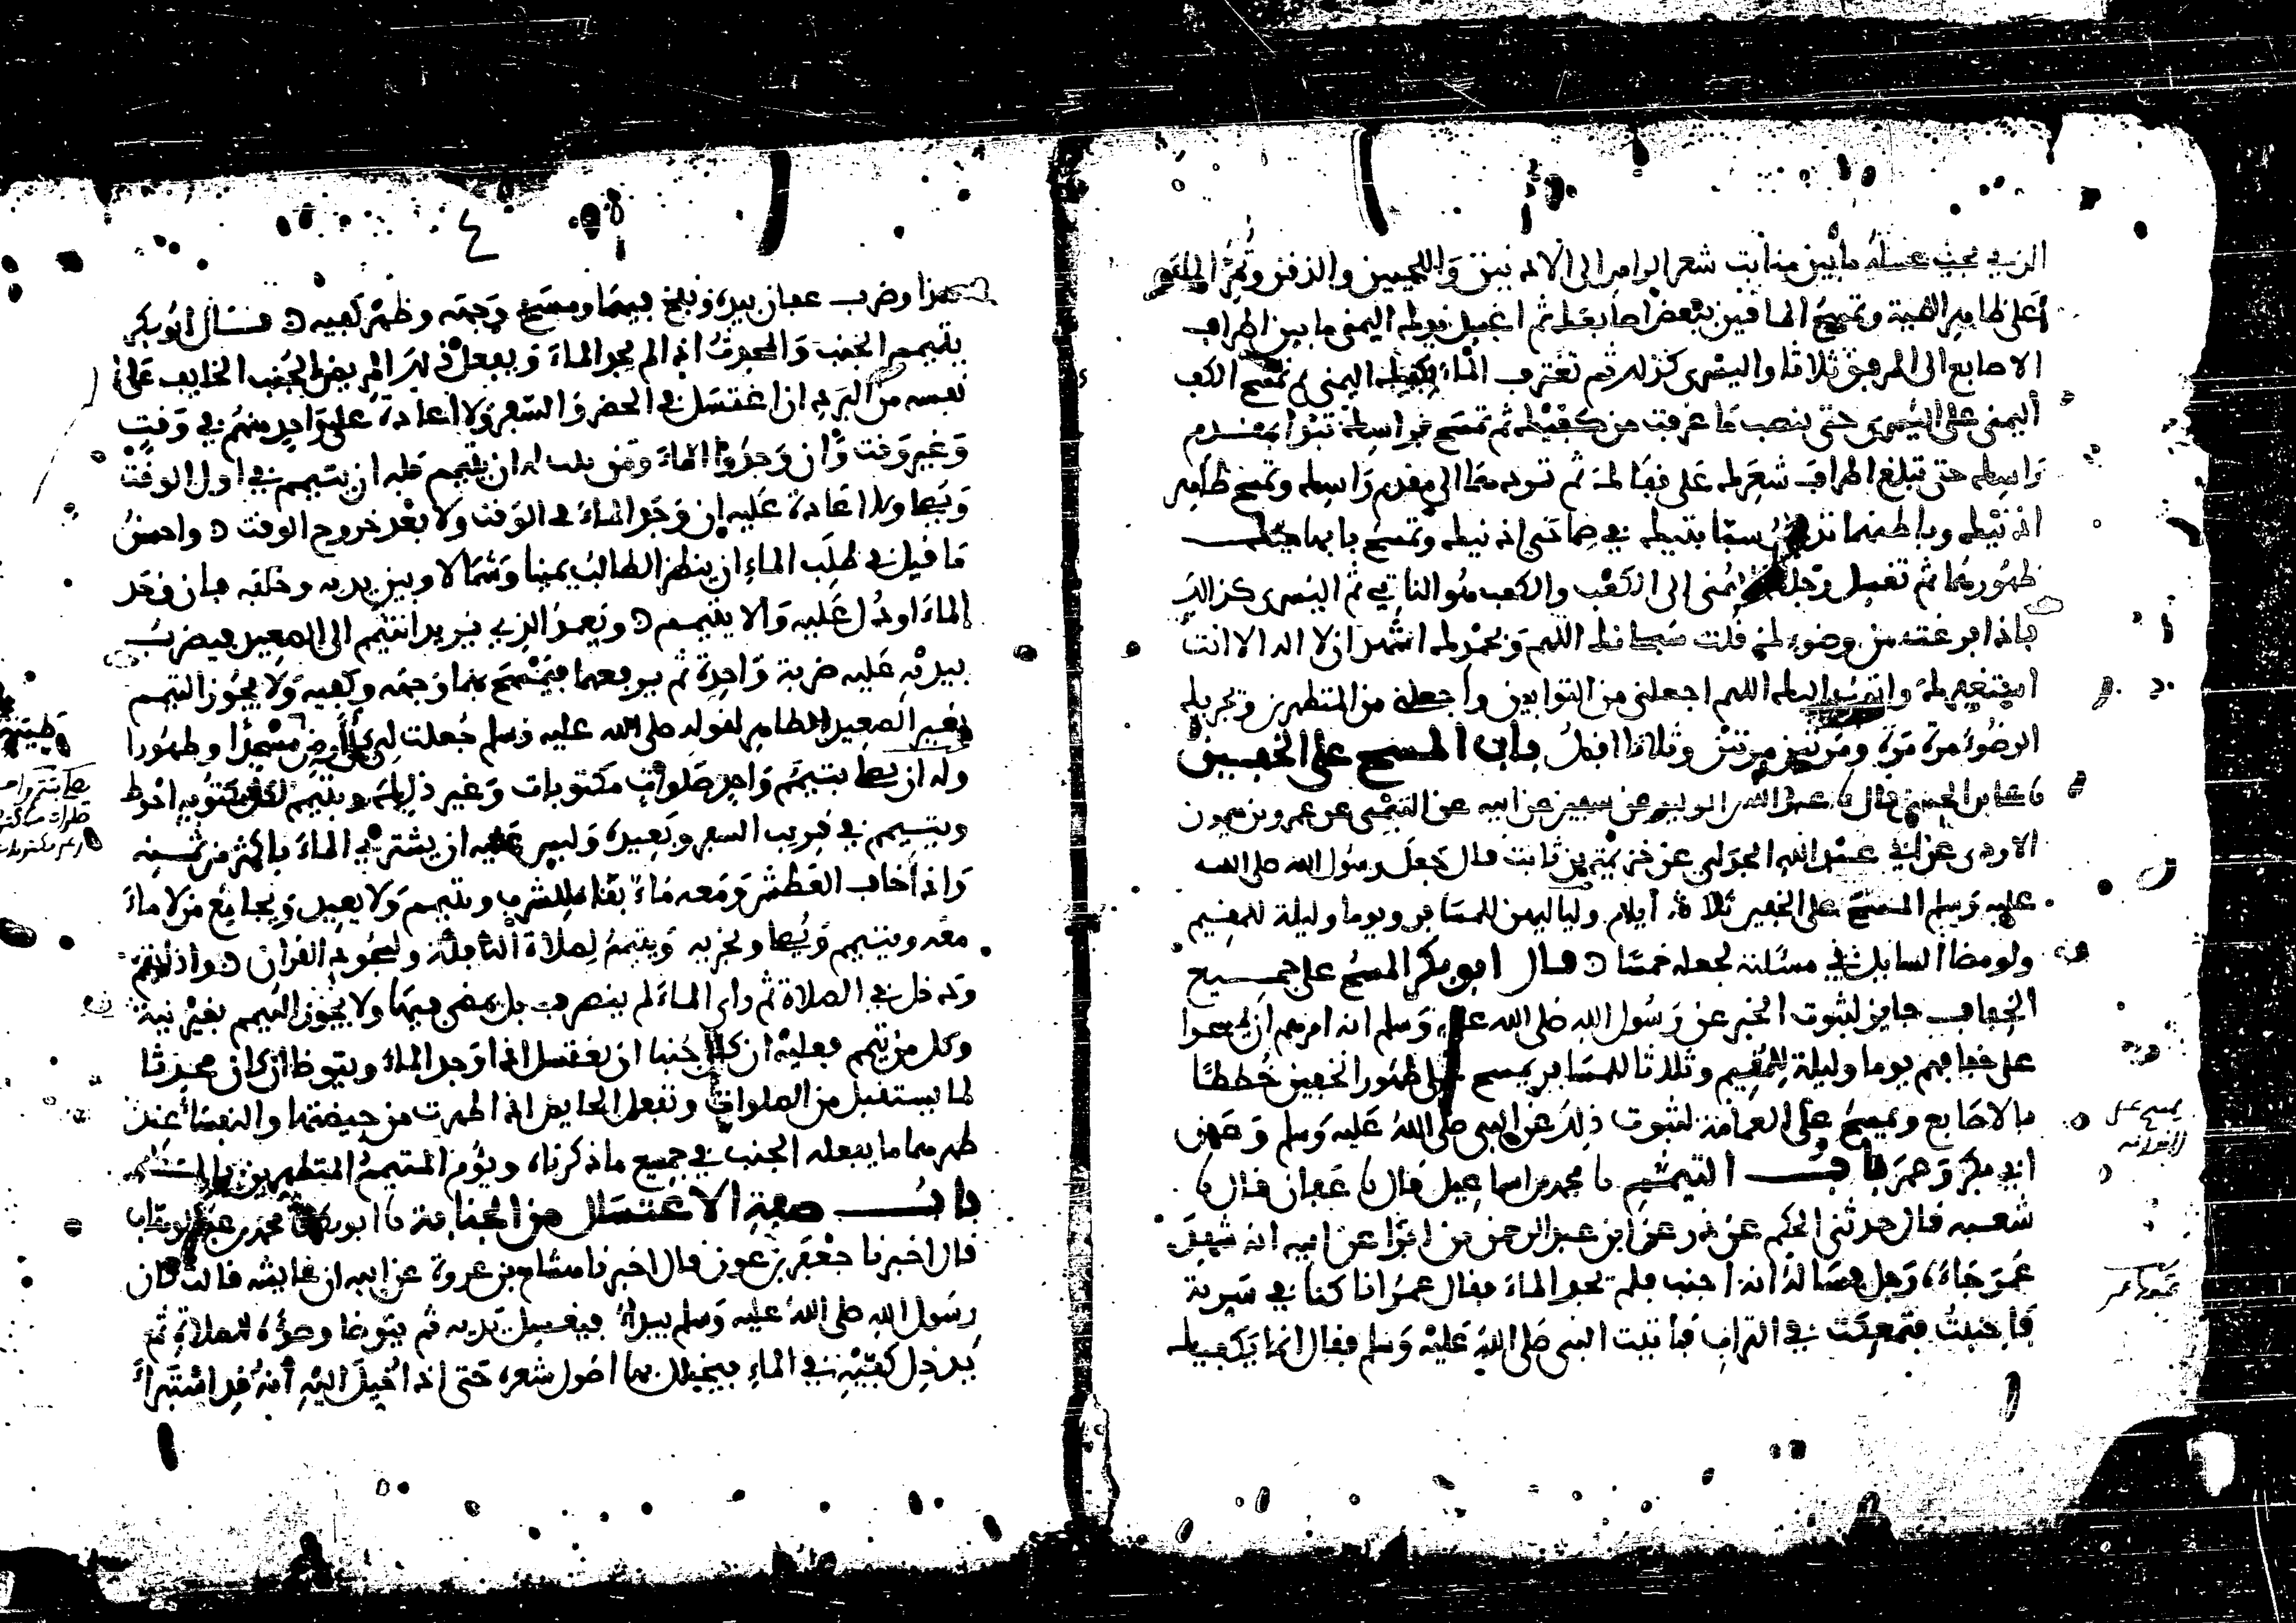 الذي يجب غسله ما بين منابت شعر الراس الى الاذنين واللحيين والذقن وتمر الماء
على ظاهر اللحية وتمسح الماقين ببعض اصابعك ثم اغسل يدك اليمنى ما بين اطراف
الاصابع الى المرفق ثلاثا واليسرى كذلك ثم تغترف الماء بكفك اليمنى ثم تمسح الكف
اليمنى على اليسرى حتى ينصب ما غرفت من كفيك ثم تمسح براسك تبدا بمقدم
راسك حتى تبلغ اطراف شعرك على قفاك ثم تردهما الى مقدم راسك وتمسح ظاهر
اذنيك وباطنهما سبابتيك في صماخي اذنيك وتمسح بابهاميك
ظهورهما ثم تغسل رجلك اليمنى الى الكعب والكعب هو الناتي ثم اليسرى كذلك
فاذا فرغت من وضوءك قلت سبحانك اللهم وبحمدك اشهد ان لا اله الا انت
استغفرك واتوب اليك اللهم اجعلني من التوابين واجعلني من المتطهرين وتجزيك
الوضوء مرة مرة ومرتين مرتين وثلاثا افضل باب المسح على الخفين
عبد الله بن الوليد عن سفين عن ابيه عن التيمي عن عمرو بن ميمون
الاودي عن ابي عبد الله الجدلي عن خزيمة بن ثابت قال جعل رسول الله صلى الله
عليه وسلم المسح على الخفين ثلاثة ايام ولياليهن للمسافر ويوما وليلة للمقيم
ولو مضا السايل في مسئلته لجعله خمسا قال ابو بكر المسح على جميع
الخفاف جايز لثبوت الخبر عن رسول الله صلى الله عليه وسلم انه امرهم ان يمسحوا
على خفافهم يوما وليلة للمقيم وثلاثا للمسافر يمسح على ظهور الخفين خططا
بالاصابع ويمسح على العمامة لثبوت ذلك عن النبي صلى الله عليه وسلم وعن
ابي بكر وعمر باب التيمم نا محمد بن اسماعيل قال نا عفان قال نا
شعبه قال حدثني الحكم عن ذر عن ابن عبد الرحمن بن ابزا عن ابيه انه شهد
عمر جاءه رجل فساله انه اجنب فلم يجد الماء فقال عمر انا كنا في سرية
فاجنبت فتمعكت في التراب فاتيت النبي صلى الله عليه وسلم فقال انما يكفيك
يمسح على
العمامة
٤
هكذا وضرب عفان بيده ونفخ فيهما ومسح وجهه وظهر كفيه قال ابو بكر
يتيمم الجنب والمحدث اذا لم يجد الماء ويفعل ذلك المريض الجنب الخايف على
نفسه من البرد ان اغتسل في الحضر والسفر ولا اعادة على واحد منهم في وقت
وغير وقت وان وجدوا الماء ومن له ان يتيمم فله ان يتيمم في اول الوقت
ويصلي ولا اعادة عليه ان وجد الماء في الوقت ولا بعد خروج الوقت واحسن
ما قيل في طلب الماء ان ينظر الطالب يمينا وشمالا وبين يديه وخلفه فان وجد
الماء او دل عليه والا يتيمم ويعمد الذي يريد التيمم الى الصعيد فيضرب
بيديه عليه ضربة واحدة ثم يرفعهما فيمسح بهما وجهه وكفيه ولا يجوز التيمم
بغير الصعيد الطاهر لقوله صلى الله عليه وسلم جعلت لي كل ارض مسجدا وطهورا
وله ان يصلي بتيمم واحد صلوات مكتوبات وغير ذلك ويتيمم لكل مكتوبه احوط
ويتيمم في قريب السفر وبعيده وليس عليه ان يشتري الماء باكثر من ثمنه
واذا خاف العطش ومعه ماء بقاه للشرب ويتيمم ولا يعيد ويجامع من لا ماء
معه ويتيمم ويصلي ويجزيه ويتيمم لصلاة النافلة ولسجود القران واذا تيمم
ودخل في الصلاة ثم راى الماء لم ينصرف بل يمضي فيها ولا يجوز التيمم بغير نية
وكل من تيمم فعليه ان كان جنبا ان يغتسل اذا وجد الماء ويتوضا ان كان محدثا
لما يستقبل من الصلوات وتفعل الحايض اذا طهرت من حيضتها والنفساء عند
طهرهما ما يفعله الجنب في جميع ما ذكرناه ويؤم المتيمم المتطهرين بالماء
باب صفة الاغتسال من الجنابة نا ابو محمد بن عبد الوهاب
قال اخبرنا جعفر بن عون قال اخبرنا هشام بن عروة عن ابيه ان عايشه قالت كان
رسول الله صلى الله عليه وسلم يبدا فيغسل يديه ثم يتوضا وضوءه للصلاة ثم
يدخل كفيه في الماء فيخلل بها اصول شعره حتى اذا خيل اليه انه قد استبرا